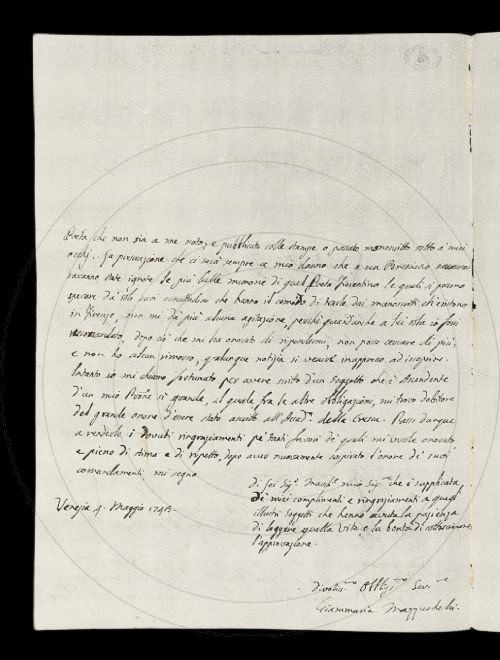 Poeta che non sia a me noto, e pubblicato colle stampe o passato manoscritto sotto a miei
occhj. La persuasione che ci sarà sempre a mio danno che a un Bresciano
saranno state ignote le più belle memorie di quel Poeta fiorentino le quali si possono
sperare da soli suoi concittadini che hanno il comodo di trarle dai manoscritti ch'esistono
in Firenze, non mi dà più alcuna agitazione, perché quand'anche a lei solo io fossi
raccomandato, dopo ciò che mi ha onorato di rispondermi, non posso cercare di più,
e non ho alcun rimorso, qualunque notizia si venisse in appresso ad iscoprire.
Intanto io mi chiamo fortunato per avere scritto d'un Soggetto che è Ascendente
d'un mio Padrone sì grande, al quale fra le altre obbligazioni, mi trovo debitore
del grande onore d'essere stato ascritto all'Accad.a della Crusca. Passo dunque
a renderle i dovuti ringraziamenti pe' tanti favori de' quali mi vuole onorato
e pieno di stima e di rispetto, dopo aver nuovamente sospirato l'onore de' suoi
comandamenti mi segno
Venezia 4. Maggio 1745.
di lei Sig.r March.e mio Sig.re che è supplicata
de' miei complimenti e ringraziamenti a quegl'
illustri Soggetti che hanno avuta la pazienza
di leggere quella Vita e la bontà di
l'approvazione.
Divotis.mo Obblig.mo Ser.re
Giammaria Mazzuchelli.